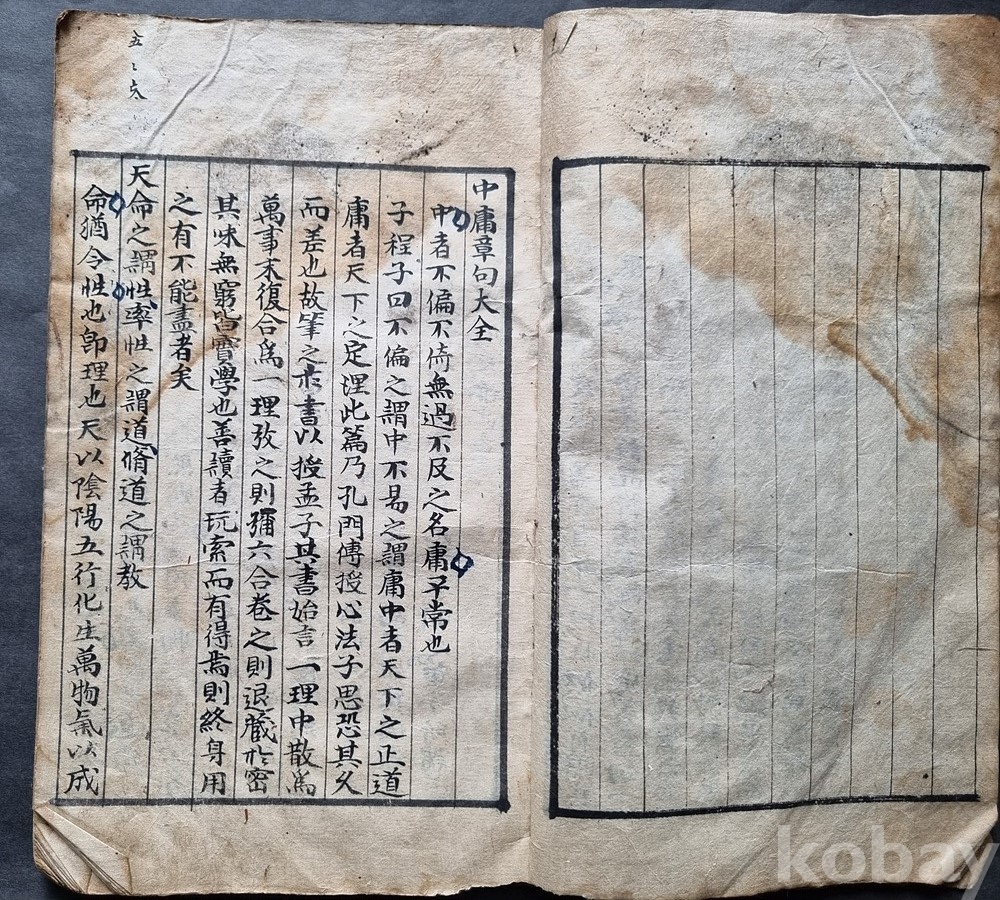 中庸章句大全
中者不偏不倚無過不及之名庸平常也
子程子曰不偏之謂中不易之謂庸中者天下之正道
庸者天下之定理此篇乃孔門傳授心法子思恐其久
而差也故筆之於書以授孟子其書始言一理中散爲
萬事末復合爲一理放之則彌六合卷之則退藏於密
其味無窮皆實學也善讀者玩索而有得焉則終身用
之有不能盡者矣
天命之謂性率性之謂道脩道之謂教
命猶令性也卽理也天以陰陽五行化生萬物氣以成
kobay